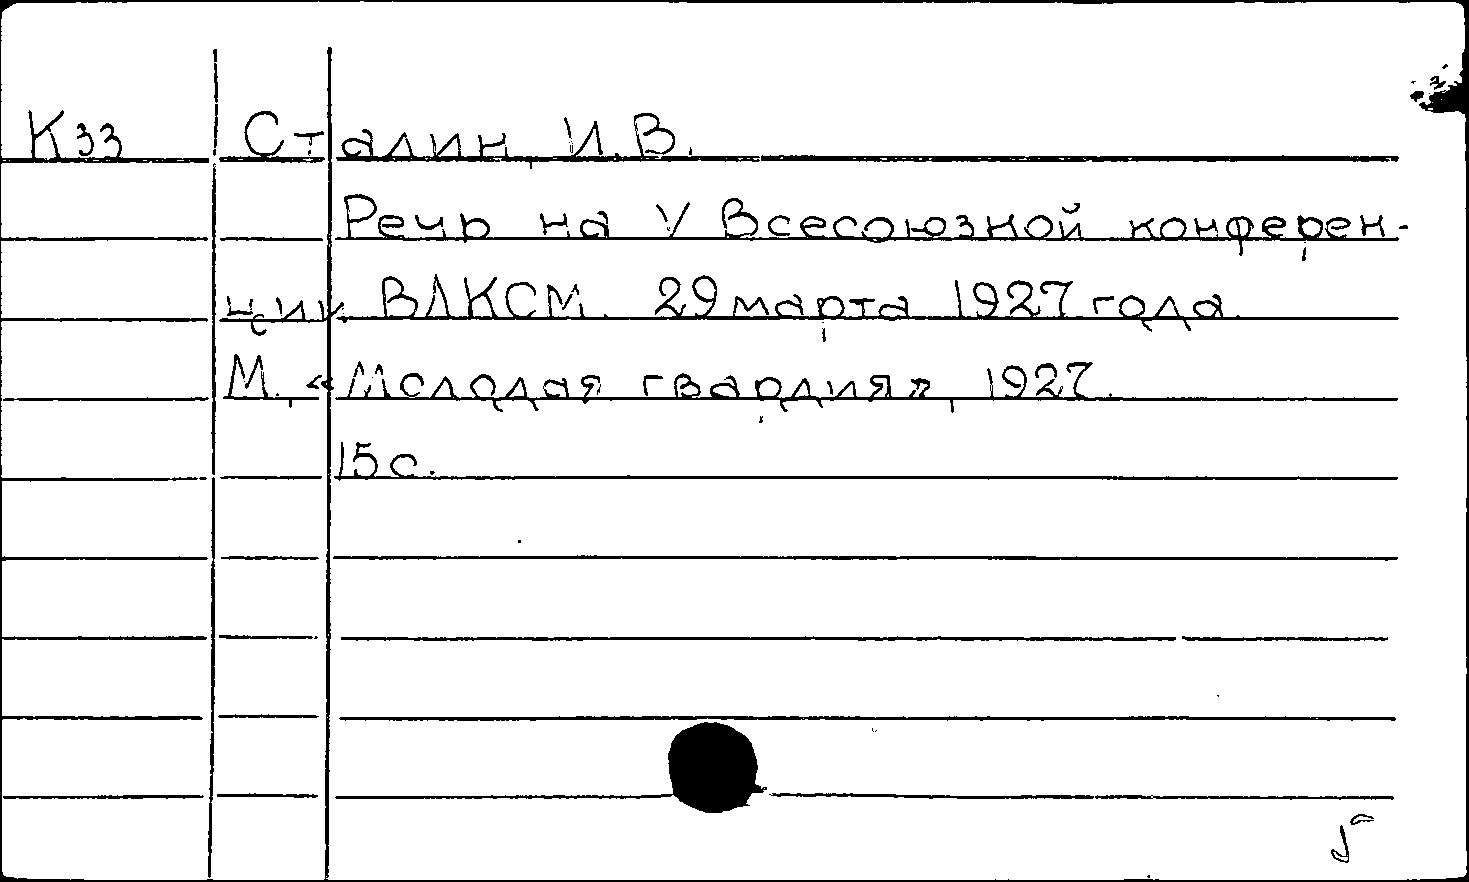 К33 Сталин, И.В.
Речь на V Всесоюзной конферен-
ции ВЛКСМ. 29 марта 1927 года.
М., «Молодая гвардия», 1927.
15 с.
5